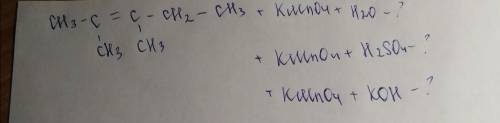 CH3-C=C-CH2-CH3 + KMnO4 + H2O - ?
CH3 CH3
+ KMnO4 + H2SO4 - ?
+ KMnO4 + KOH - ?